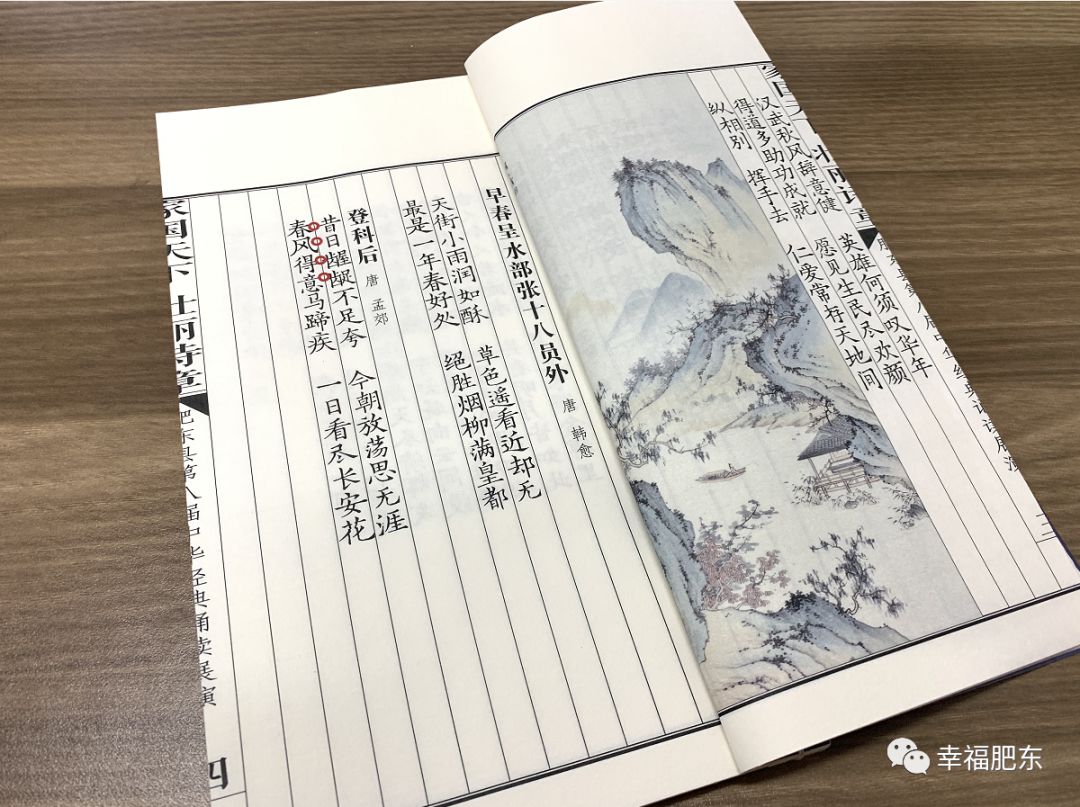 汉武秋风辞意健 英雄何须叹华年
得道多助功成就 愿见生民尽欢颜
纵相别 挥手去 仁爱常存天地间
三
早春呈水部张十八员外 唐 韩愈
天街小雨润如酥 草色遥看近却无
最是一年春好处 绝胜烟柳满皇都
登科后 唐 孟郊
昔日龌龊不足夸 今朝放荡思无涯
春风得意马蹄疾 一日看尽长安花
家国天下 壮丽诗章 肥东县第八届中华经典诵读展演
四
幸福肥东